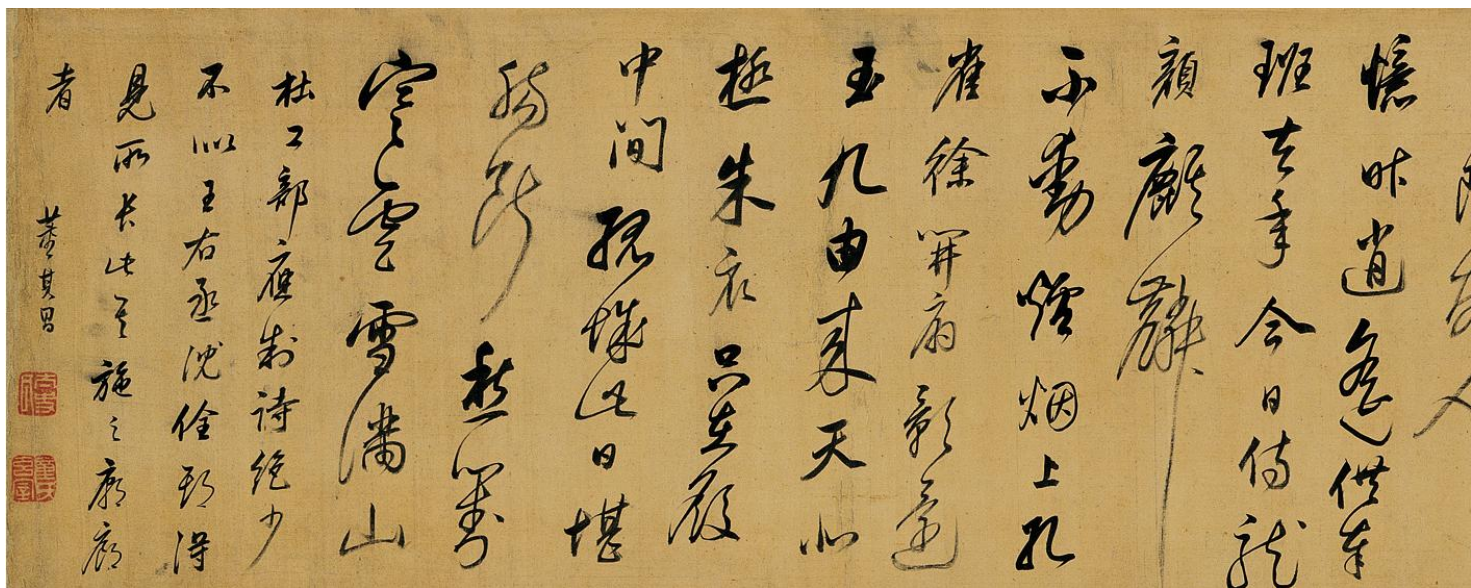 故人
憶昨逍遙供奉
班去年今日侍龍
顏麒麟
不動爐烟上孔
雀徐開扇影還
玉几由來天北
極朱衣只在殿
中間孤城此日堪
腸斷愁對
寒雲雪滿山
杜工部應制詩絕少
不似王右丞沈佺期得
見所長此其施之廊廟
者
董其昌